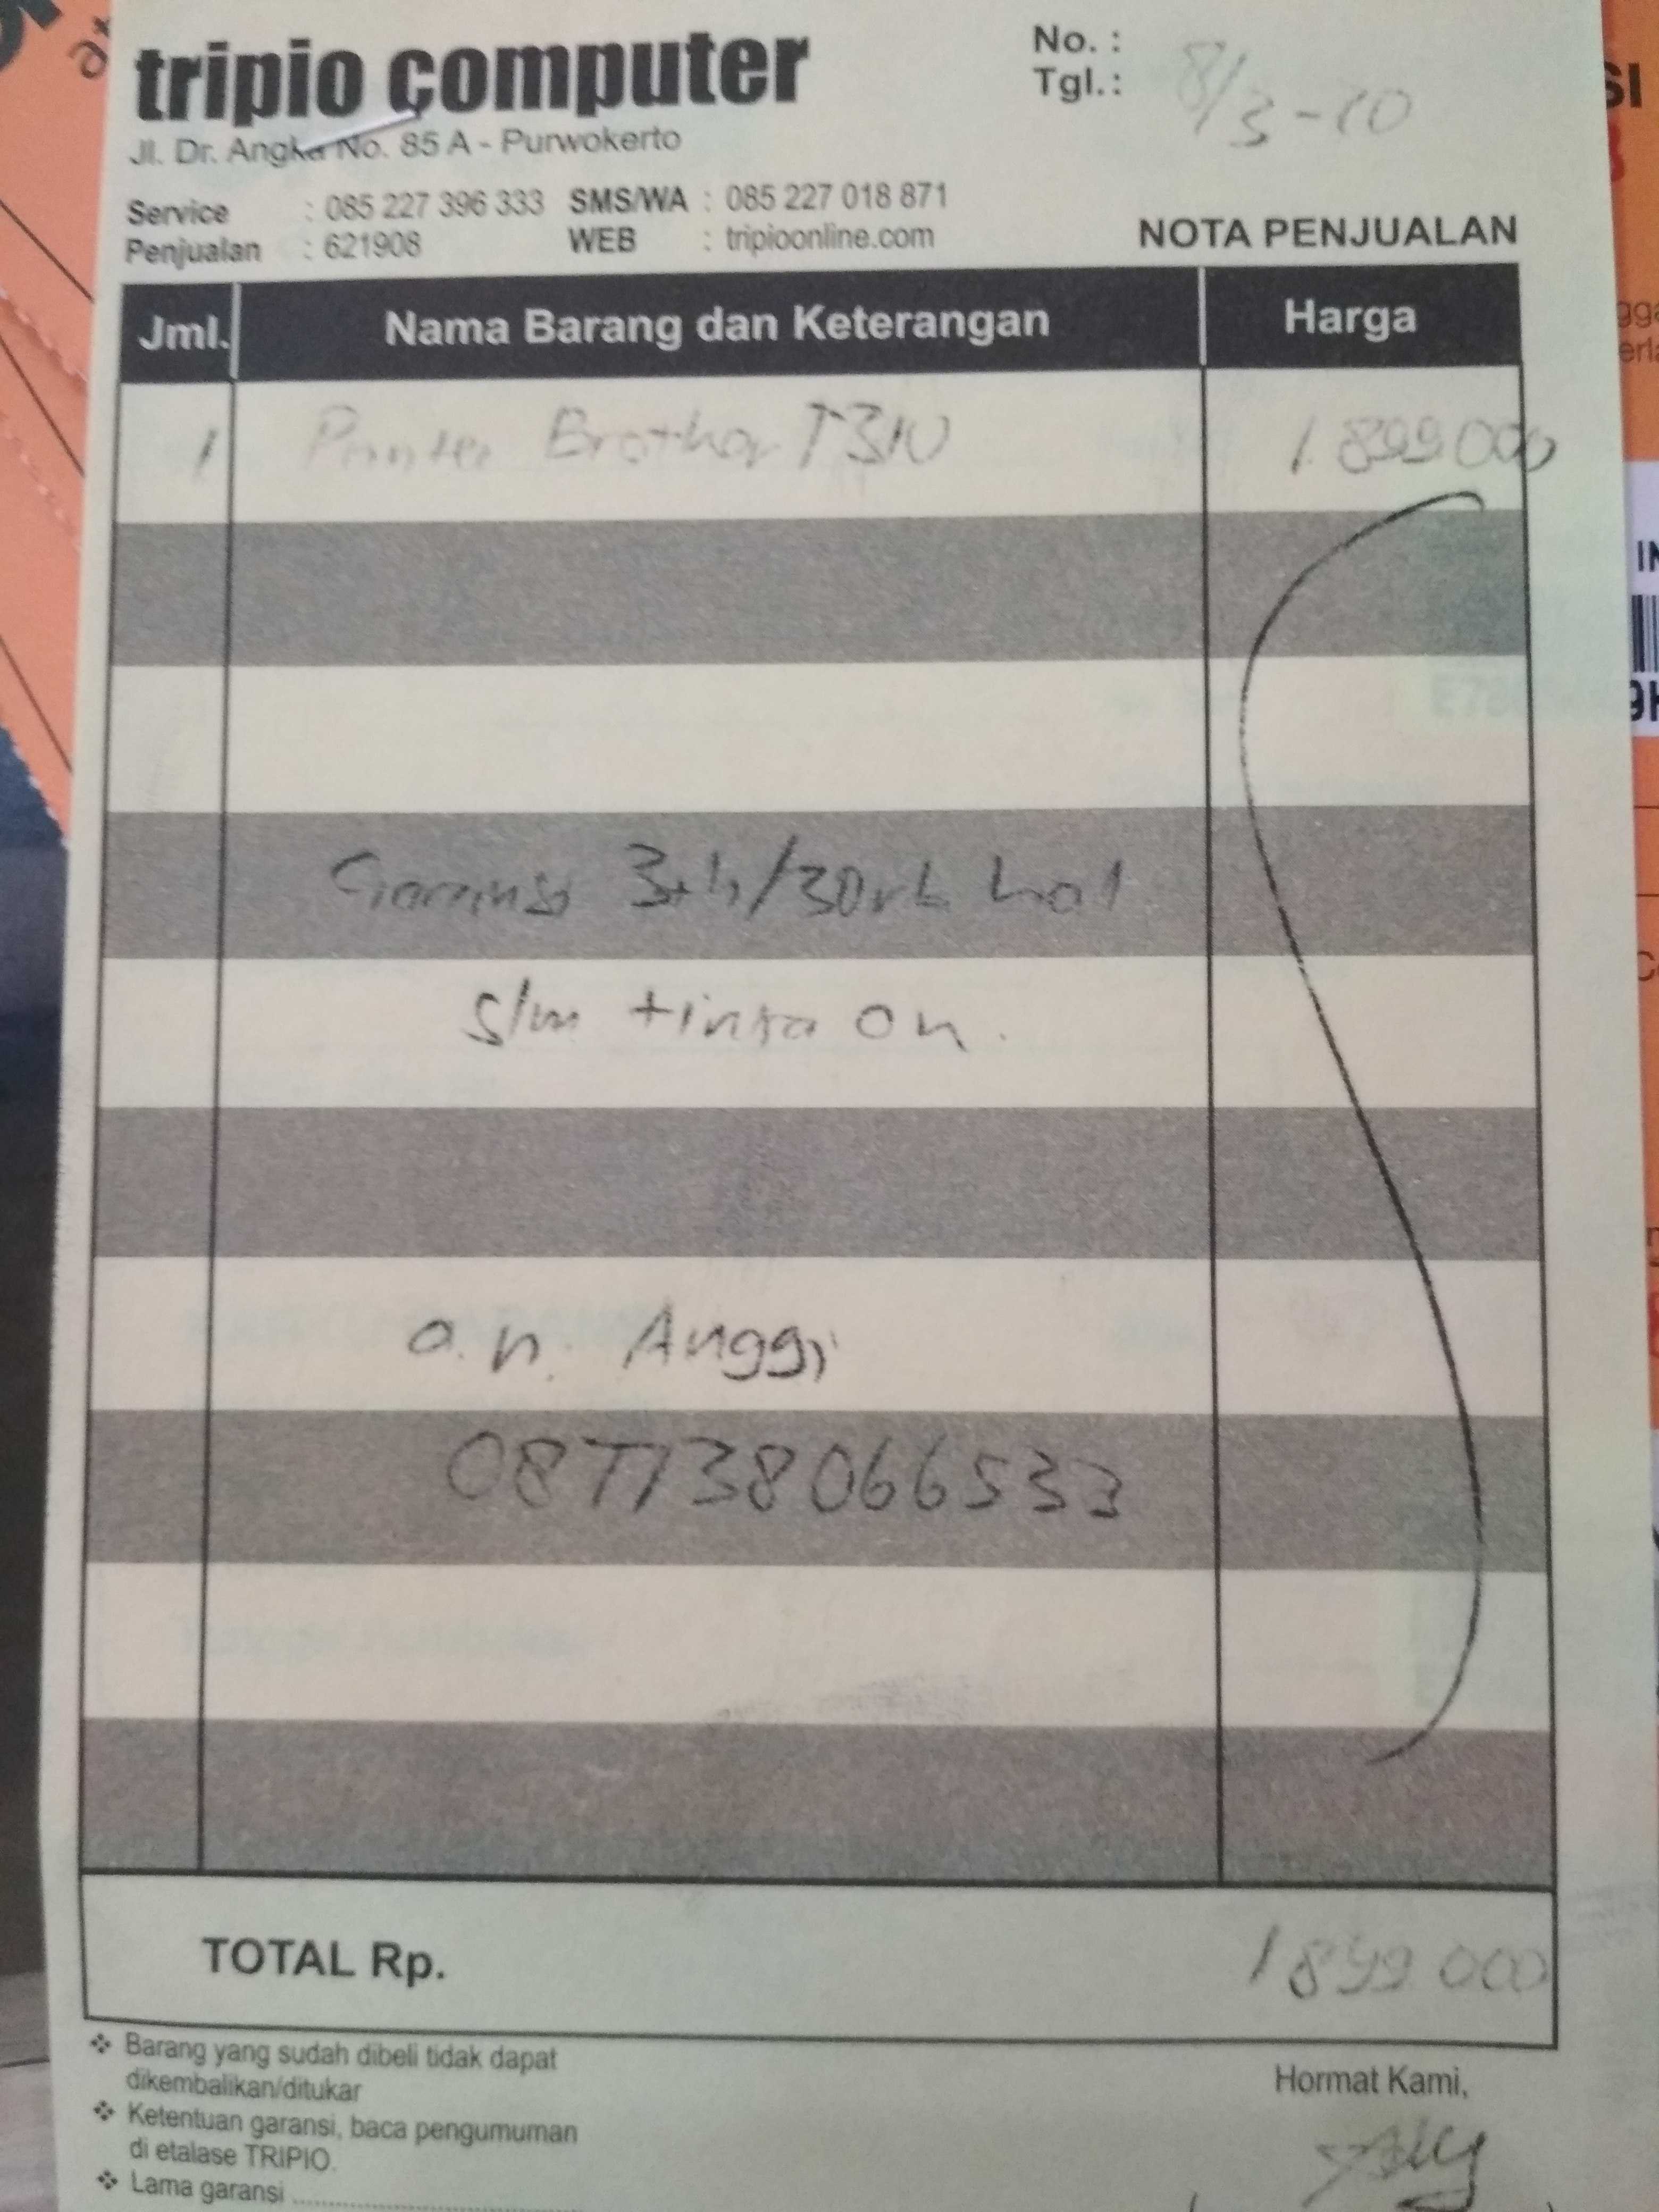 tripio computer
Jl. Dr. Angka No. 85 A - Purwokerto
No. :
Tgl.: 8/3-20
Service : 085 227 396 333 SMS/WA : 085 227 018 871
Penjualan : 621908 WEB : tripioonline.com
NOTA PENJUALAN
Jml. Nama Barang dan Keterangan Harga
1 Printer Brother T310 1.899.000
Garansi 3th/30rb hal
s/m tinta on.
a.n. Anggi
087738066533
TOTAL Rp. 1899.000
❖ Barang yang sudah dibeli tidak dapat
dikembalikan/ditukar
❖ Ketentuan garansi, baca pengumuman
di etalase TRIPIO.
❖ Lama garansi
Hormat Kami,